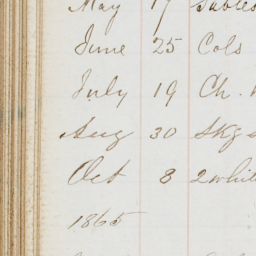 May 17
June 25 Cols
July 19 Ch.
Aug 30 Skgs
Oct 8 2 whit
1865